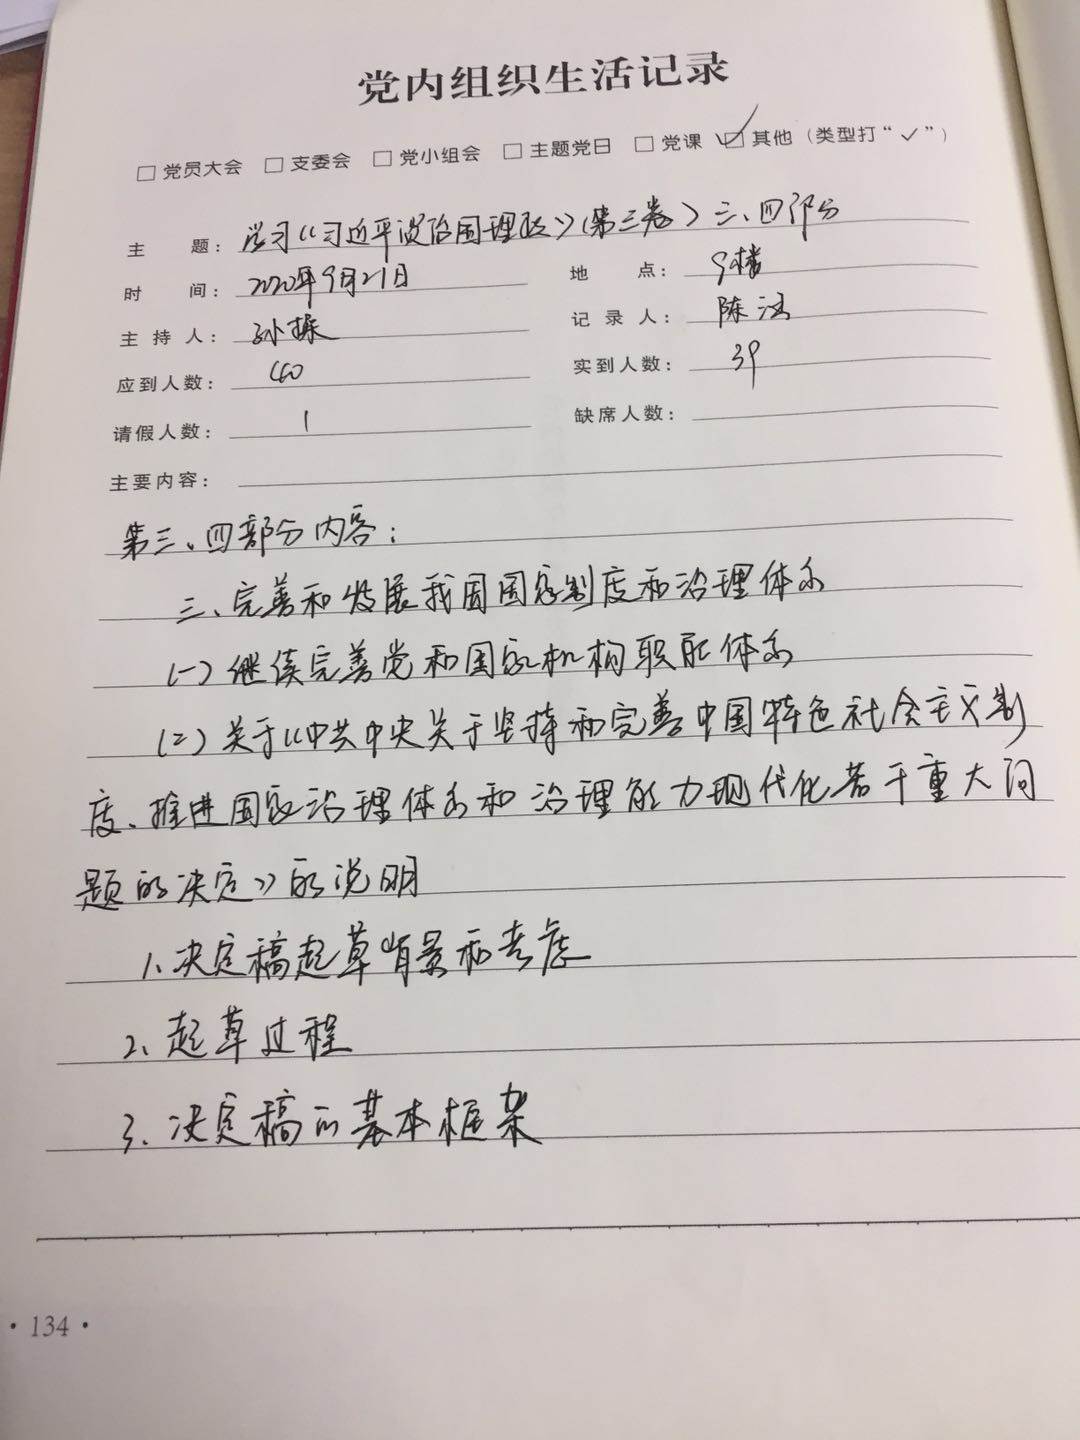 党内组织生活记录
□ 党员大会 □ 支委会 □ 党小组会 □ 主题党日 □ 党课 ☑ 其他（类型打“✓”）
主 题：学习《习近平谈治国理政》（第三卷）三、四部分
时 间：2020年9月21日 地 点：9楼
主 持 人：孙操 记 录 人：陈
应到人数：40 实到人数：39
请假人数：1 缺席人数：
主要内容：
第三、四部分内容：
三、完善和发展我国国家制度和治理体系
（一）继续完善党和国家机构职能体系
（二）关于《中共中央关于坚持和完善中国特色社会主义制
度、推进国家治理体系和治理能力现代化若干重大问
题的决定》的说明
1、决定稿起草背景和考虑
2、起草过程
3、决定稿的基本框架
· 134 ·